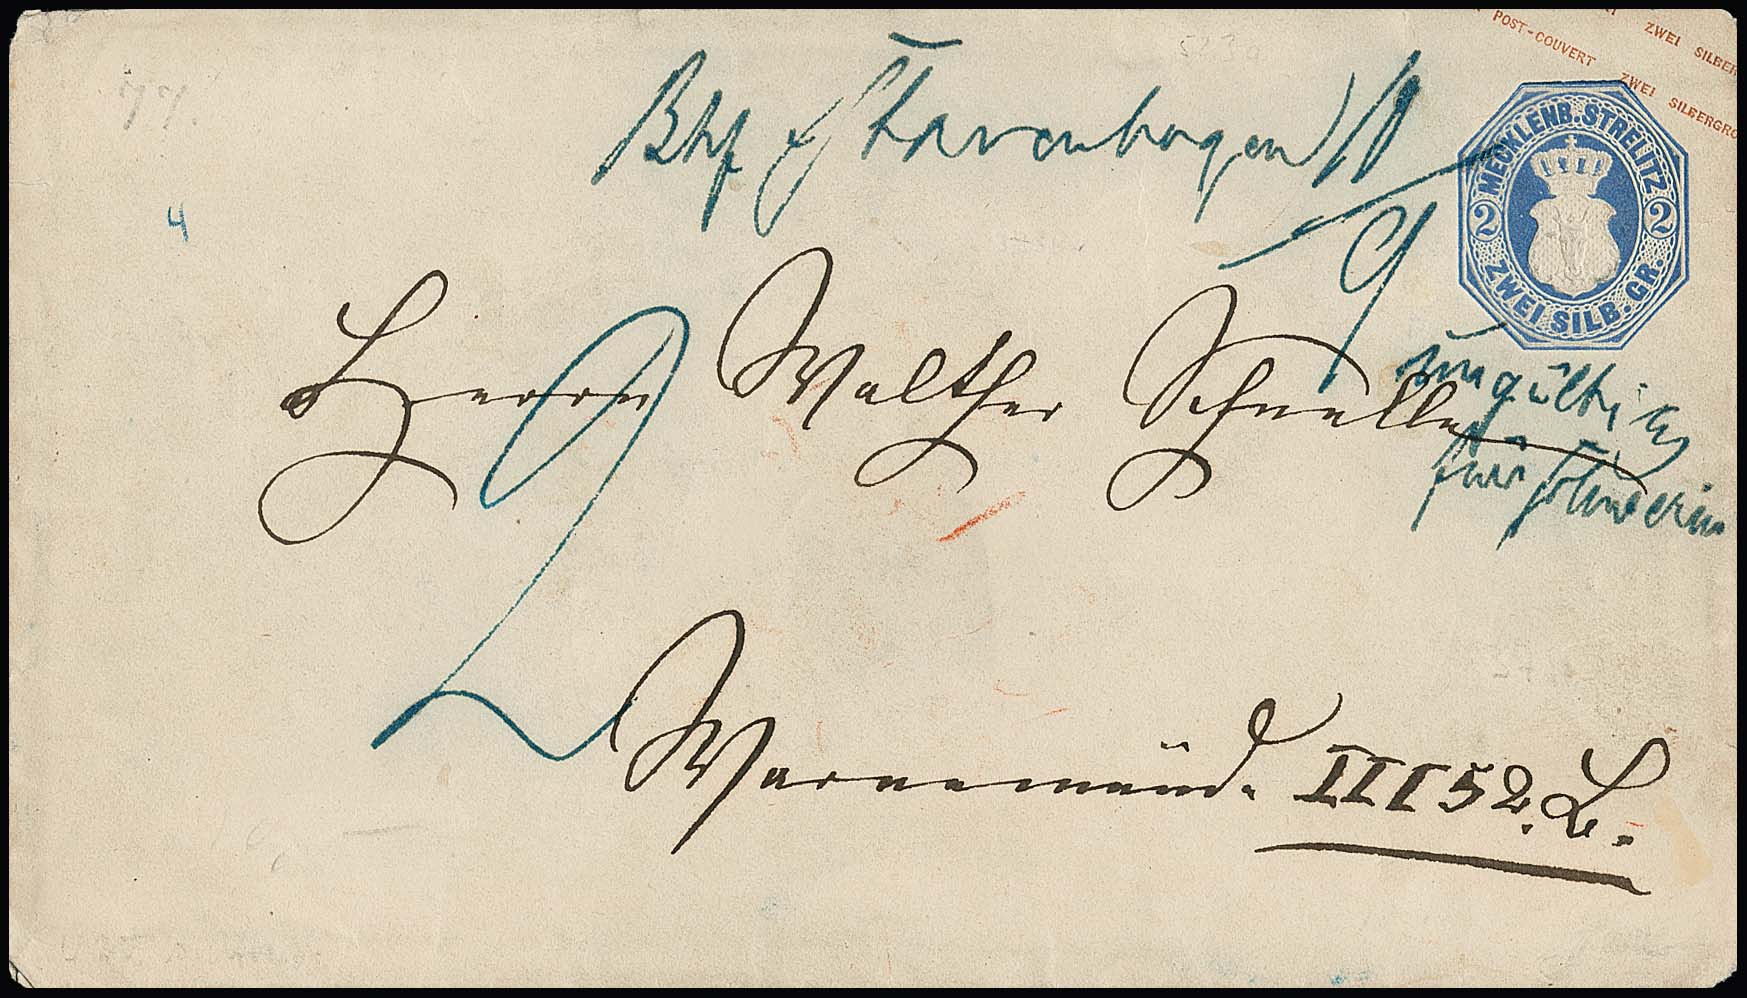 POST-COUVERT ZWEI SILBERGRO
ZWEI SILBER
MECKLENB. STRELITZ
2 2
ZWEI SILB. GR.
Bhf Stavenhagen
9
ungültig
für Schwerin
4
2
Herrn Walther Schnelle
Warnemünde III 52. L.